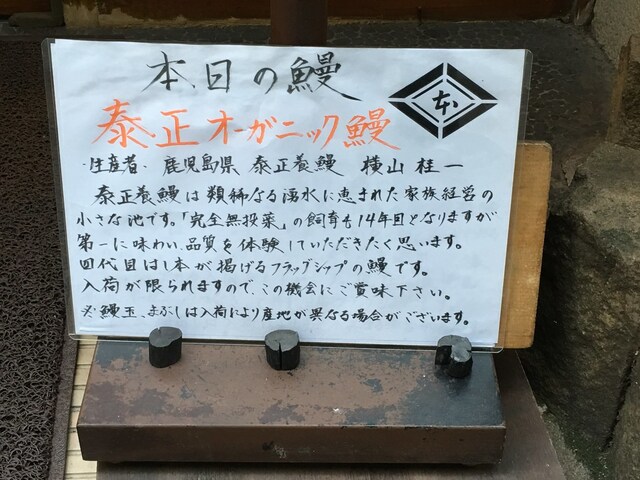 本日の鰻
本
泰正オーガニック鰻
・生産者・ 鹿児島県 泰正養鰻 横山 桂一
泰正養鰻は類稀なる湧水に恵まれた家族経営の
小さな池です。「完全無投薬」の飼育も14年目となりますが
第一に味わい、品質を体験していただきたく思います。
四代目はし本が掲げるフラッグシップの鰻です。
入荷が限られますので、この機会にご賞味下さい。
※鰻玉、まぶしは入荷により産地が異なる場合がございます。